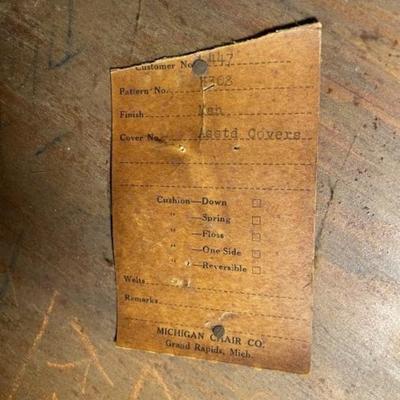 Customer No. 1447
Pattern No.
Finish Man
Cover No. Asstd Covers
Cushion—Down
" —Spring
" —Floss
" —One Side
" —Reversible
Welts
Remarks
MICHIGAN CHAIR CO.
Grand Rapids, Mich.